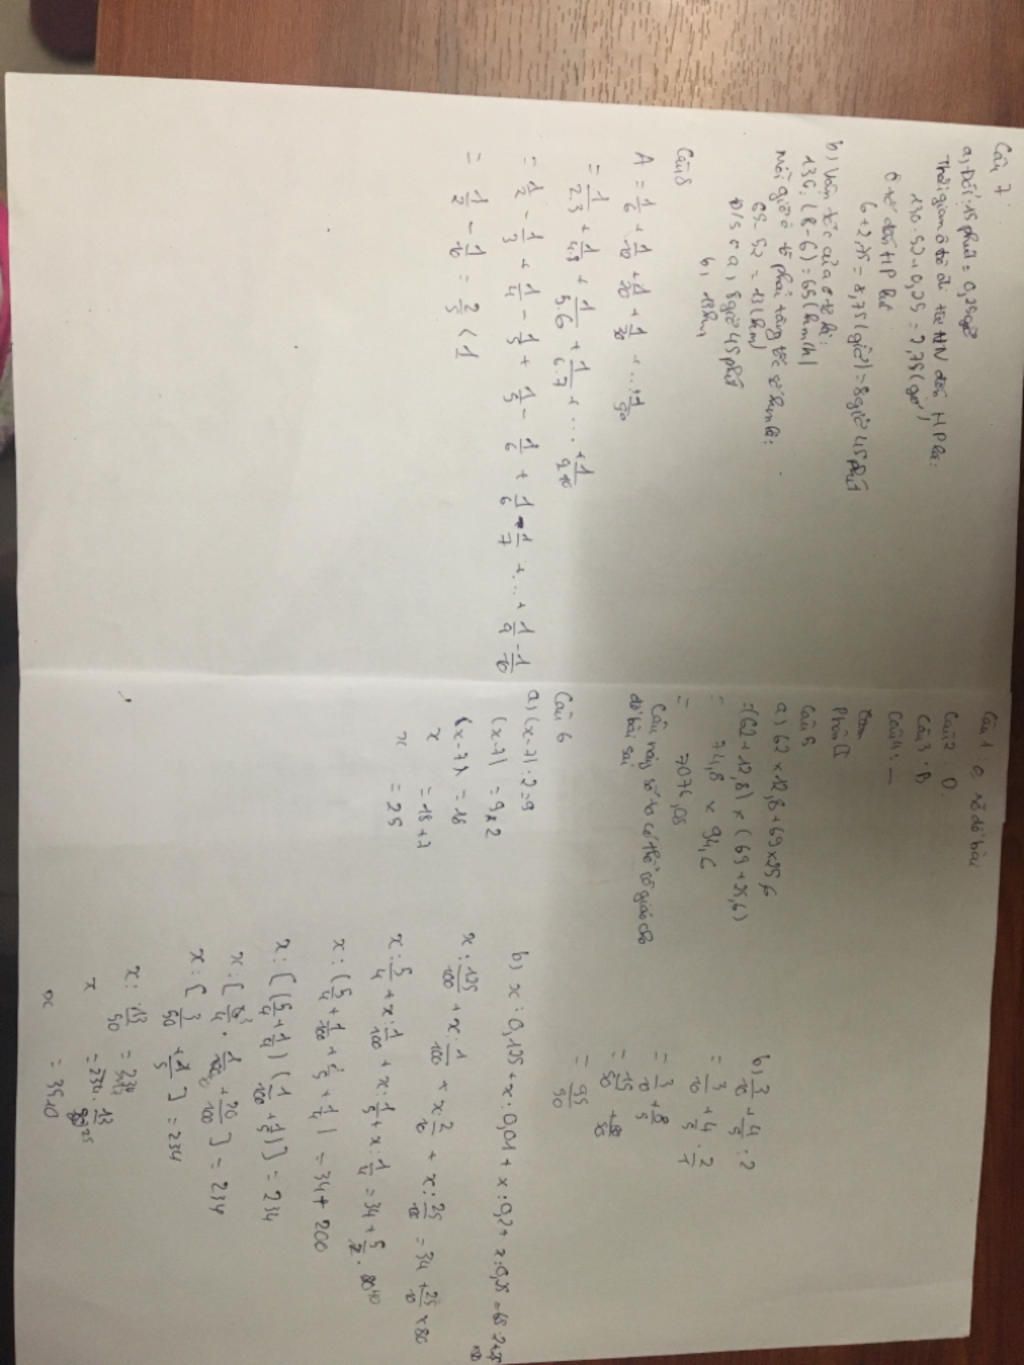 Câu 7:
a) Đổi: 15 phút = 0,25 giờ
Thời gian ô tô đi từ HN đến HP là:
130 : 52 + 0,25 = 2,75 (giờ)
Ô tô đến HP lúc
6 + 2,75 = 8,75 (giờ) = 8 giờ 45 phút
b) Vận tốc của ô tô là:
130 : (8 - 6) = 65 (km/h)
Mỗi giờ ô tô phải tăng tốc số km là:
65 - 52 = 13 (km)
Đ/S: a) 8 giờ 45 phút
b) 13 km
Câu 8
A = 1/6 + 1/20 + 1/30 + ... + 1/90
= 1/2.3 + 1/4.5 + 1/5.6 + 1/6.7 + ... + 1/9.10
= 1/2 - 1/3 + 1/4 - 1/5 + 1/5 - 1/6 + 1/6 - 1/7 + ... + 1/9 - 1/10
= 1/2 - 1/10 = 2/5 < 1
Câu 1: đề bài
Câu 2: D
Câu 3: B
Câu 4: —
Phần II
Câu 5
a) 62 x 12,8 + 69 x 25,6
= (62 + 12,8) x (69 + 25,6)
= 74,8 x 94,6
= 7076,08
Câu này có thể cô giáo cho
đề bài sai
b) 3/10 + 4/5 : 2
= 3/10 + 4/5 . 2/1
= 3/10 + 8/5
= 15/50 + 80/50
= 95/50
Câu 6
a) (x - 7) : 2 = 9
(x - 7) = 9 x 2
(x - 7) = 18
x = 18 + 7
x = 25
b) x : 0,125 + x : 0,01 + x : 0,2 + x : 0,25
x : 125/100 + x : 1/100 + x : 2/10 + x : 25/100 = 34 + 25/10 x 80
x : 5/4 + x : 1/100 + x : 1/5 + x : 1/4 = 34 + 5/2 . 80
x : (5/4 + 1/100 + 1/5 + 1/4) = 34 + 200
x : [(5/4 + 1/4) (1/100 + 1/5)] = 234
x : [ + 20/100] = 234
x : [3/50 + 1/5] = 234
x : 13/50 = 234
x = 234 . 13
x = 3510